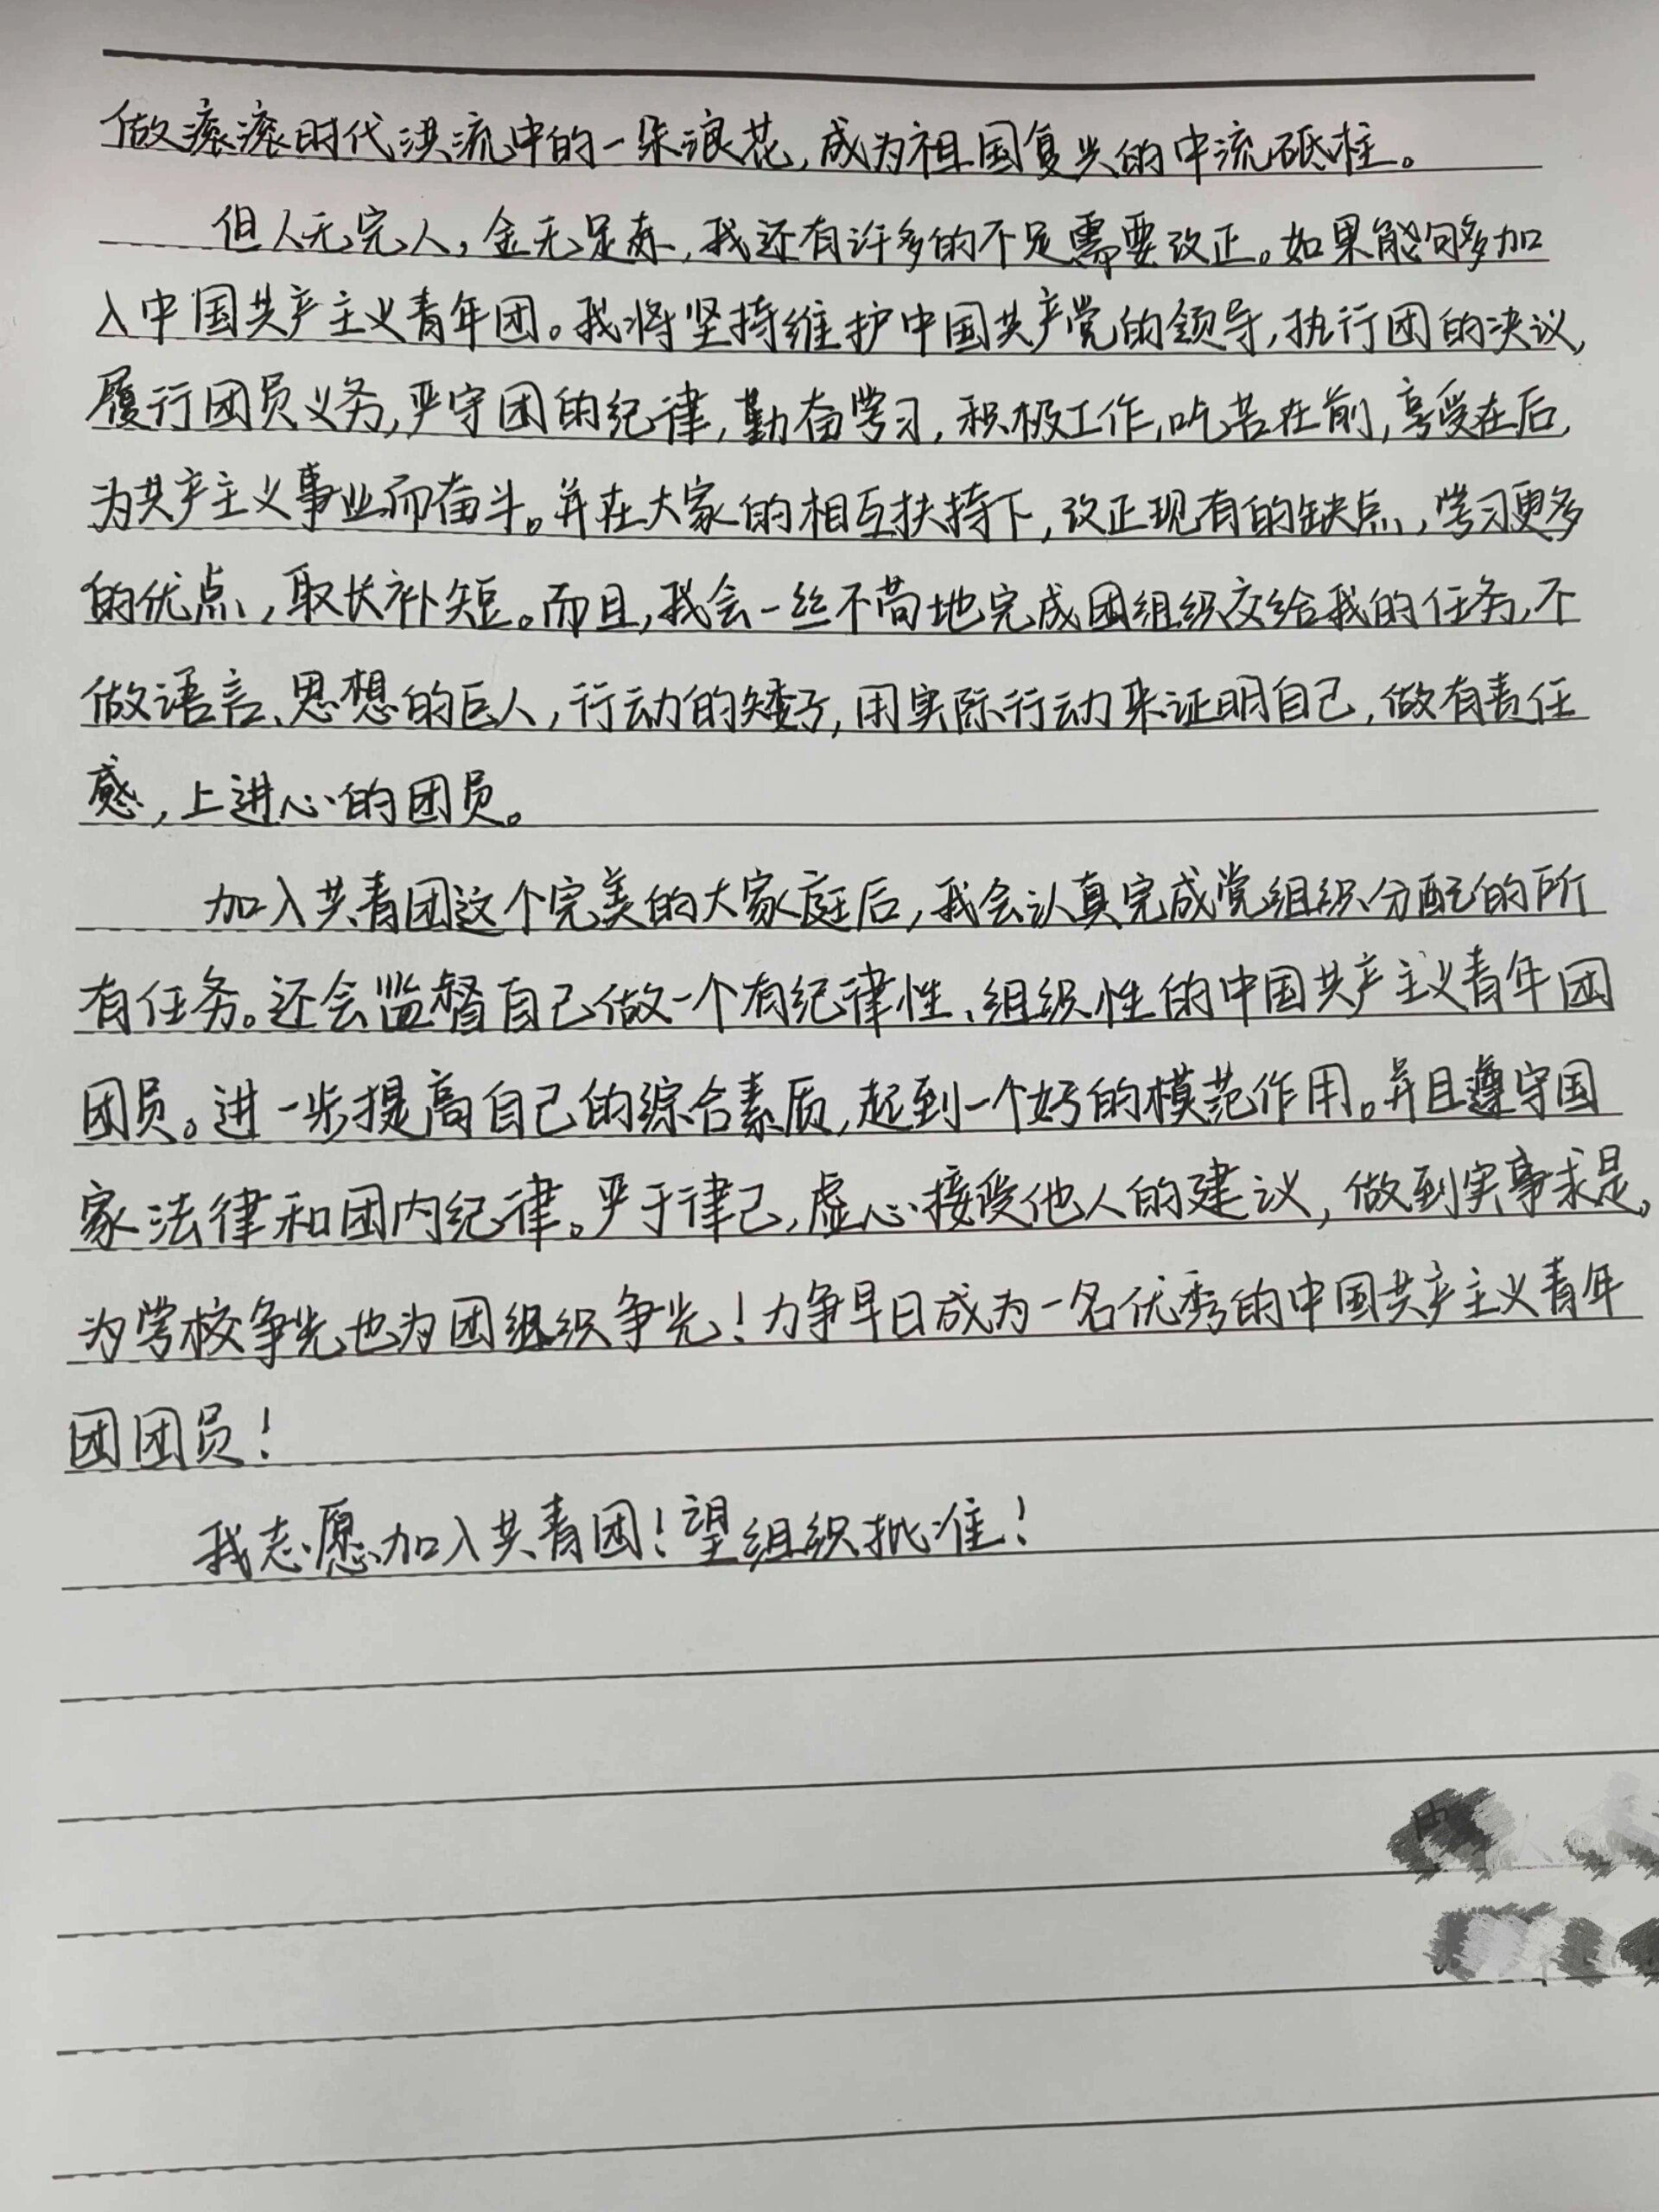 做滚滚时代洪流中的一朵浪花,成为祖国复兴的中流砥柱。
但人无完人,金无足赤,我还有许多的不足需要改正。如果能够多加
入中国共产主义青年团。我将坚持维护中国共产党的领导,执行团的决议,
履行团员义务,严守团的纪律,勤奋学习,积极工作,吃苦在前,享受在后,
为共产主义事业而奋斗。并在大家的相互扶持下,改正现有的缺点,学习更多
的优点,取长补短。而且,我会一丝不苟地完成团组织交给我的任务,不
做语言、思想的巨人,行动的矮子,用实际行动来证明自己,做有责任
感,上进心的团员。
加入共青团这个完美的大家庭后,我会认真完成党组织分配的所
有任务。还会监督自己做一个有纪律性、组织性的中国共产主义青年团
团员。进一步提高自己的综合素质,起到一个好的模范作用。并且遵守国
家法律和团内纪律。严于律己,虚心接受他人的建议,做到实事求是。
为学校争光也为团组织争光!力争早日成为一名优秀的中国共产主义青年
团团员!
我志愿加入共青团!望组织批准!